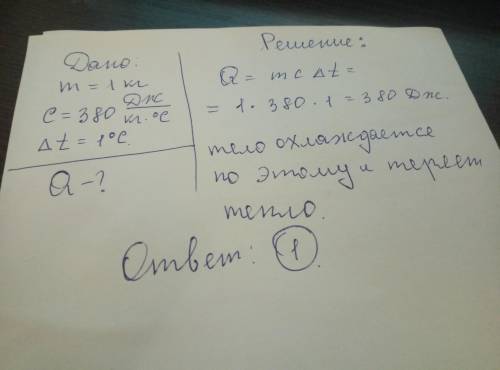 Дано:
m = 1 кг
C = 380 Дж/кг·°C
Δt = 1°C.
Q - ?
Решение:
Q = m c Δt =
= 1 · 380 · 1 = 380 Дж.
тело охлаждается
по этому и теряет
тепло.
Ответ: 1.